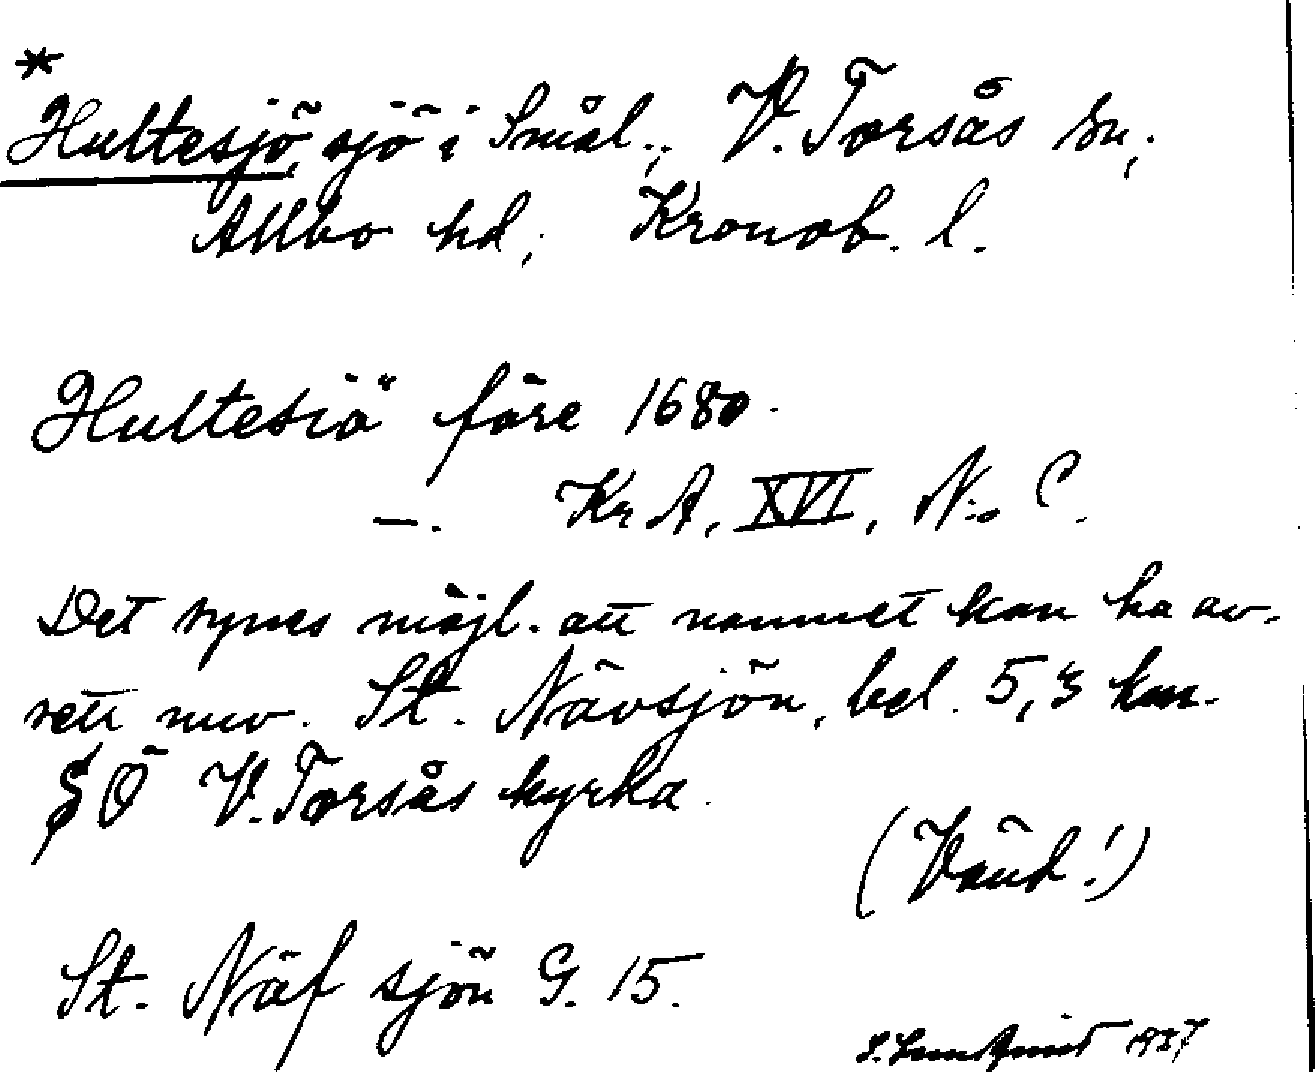 *
Hultesjö, sjö i Smål., V. Torsås sn,
Allbo hd, Kronob. l.
Hultesiö före 1680.
—. Kr A, XVI, N:o C.
Det synes möjl. att namnet kan ha av-
sett nuv. St. Nävsjön, bel. 5,3 km.
SÖ V. Torsås kyrka.
(Vänd!)
St. Näf sjön G. 15.
1937